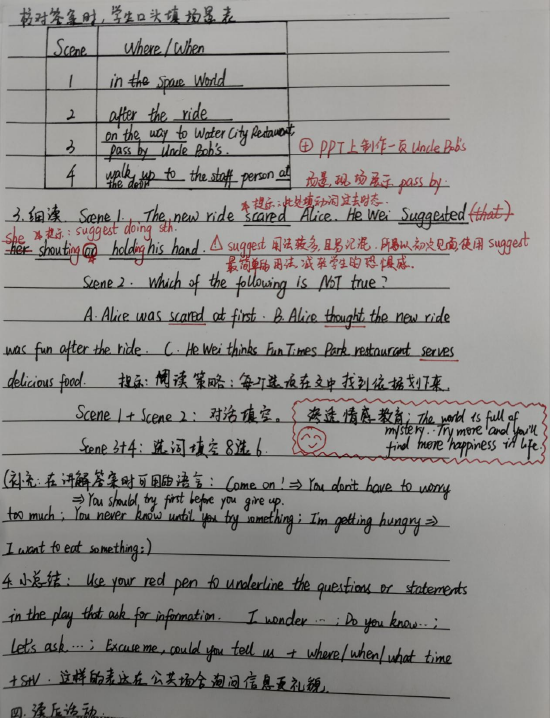 核对答案时,学生口头填场景表
Scene Where/When
1 in the Space World
2 after the ride
3 on the way to Water City Restaurant,
pass by Uncle Bob's.
4 walk up to the staff person at
the door
⊕ PPT上制作一页Uncle Bob's
场景,现场展示 pass by.
※提示:此处填动词过去时态.
3.细读 Scene 1. The new ride scared Alice. He Wei suggested (that)
she ※提示: suggest doing sth.
her shouting or holding his hand. △ suggest 用法较多,且易记混.所以初次见面使用 suggest
最简单的用法,减轻学生的恐惧感.
Scene 2. Which of the following is NOT true?
A. Alice was scared at first. B. Alice thought the new ride
was fun after the ride. C. He Wei thinks Fun Times Park restaurant serves
delicious food. 提示:阅读策略:每个选项在文中找到依据划下来.
Scene 1 + Scene 2: 对话填空。
渗透情感教育: The world is full of
mystery. Try more and you'll
find more happiness in life.
Scene 3+4: 选词填空8选6.
(补充:在讲解答案时可用的语言: Come on! ⇒ You don't have to worry
⇒ You should try first before you give up.
too much; You never know until you try something; I'm getting hungry ⇒
I want to eat something:)
4.小总结: Use your red pen to underline the questions or statements
in the play that ask for information. I wonder …; Do you know…;
Let's ask …; Excuse me, could you tell us + where/when/what time
+S+V. 这样的表达在公共场合询问信息更礼貌.
四.读后活动.